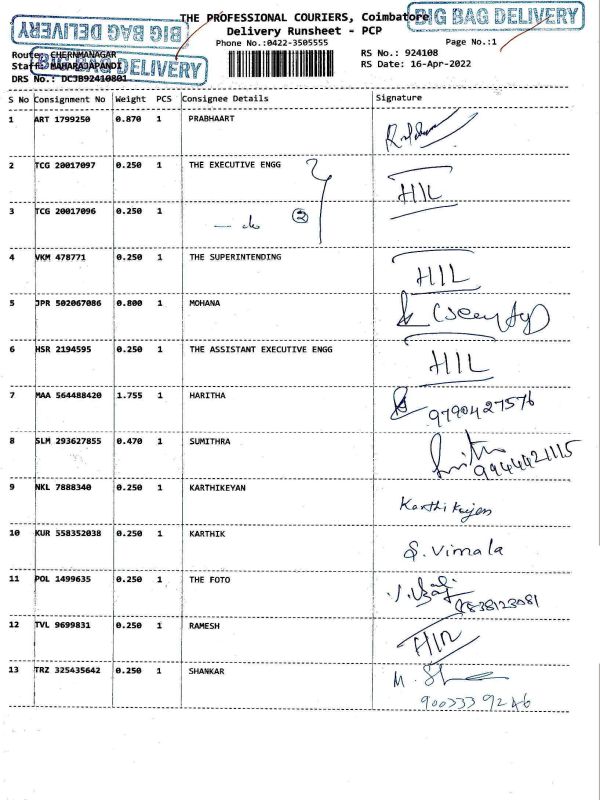 THE PROFESSIONAL COURIERS, Coimbatore
BIG BAG DELIVERY
BIG BAG DELIVERY
Delivery Runsheet - PCP
Phone No.:0422-3505555
Page No.:1
Route: CHERNMANAGAR
RS No.: 924108
Staff: MAHARAJAPANDI
BIG BAG DELIVERY
RS Date: 16-Apr-2022
DRS No.: DCJB92410801
S No Consignment No Weight PCS Consignee Details Signature
1 ART 1799250 0.870 1 PRABHAART
2 TCG 20017097 0.250 1 THE EXECUTIVE ENGG HIL
3 TCG 20017096 0.250 1 - do 2
4 VKM 478771 0.250 1 THE SUPERINTENDING HIL
5 JPR 502067086 0.800 1 MOHANA
6 HSR 2194595 0.250 1 THE ASSISTANT EXECUTIVE ENGG HIL
7 MAA 564488420 1.755 1 HARITHA 9790427576
8 SLM 293627855 0.470 1 SUMITHRA
9444421115
9 NKL 7888340 0.250 1 KARTHIKEYAN Karthikeyan
10 KUR 558352038 0.250 1 KARTHIK S. Vimala
11 POL 1499635 0.250 1 THE FOTO
9838123081
12 TVL 9699831 0.250 1 RAMESH
13 TRZ 325435642 0.250 1 SHANKAR
9003339246